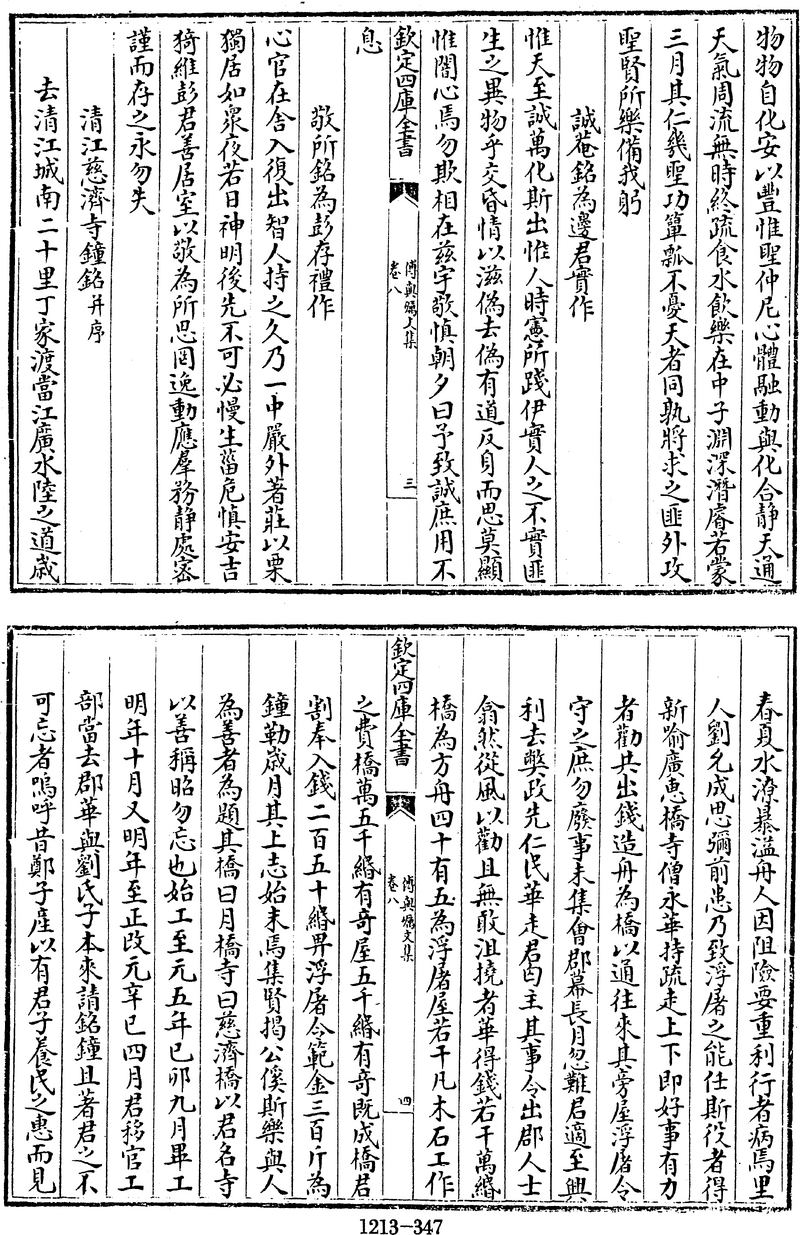 物物自化安以豐惟聖仲尼心體融動與化合静天通
天氣周流無時終疏食水飲樂在中子淵深潛睿若蒙
三月其仁幾聖功簞瓢不憂天者同孰將求之匪外攻
聖賢所樂備我躬
誠菴銘為邊君實作
惟天至誠萬化斯出惟人時憲所踐伊實人之不實匪
生之異物乎交昏情以滋偽去偽有道反身而思莫顯
惟闇心焉勿欺相在兹宇敬慎朝夕曰予致誠庶用不
欽定四庫全書
傅與礪文集
卷八
三
息
敬所銘為彭存禮作
心官在舍入復出智人持之久乃一中嚴外著莊以栗
獨居如衆夜若日神明後先不可必慢生菑危慎安吉
猗維彭君善居室以敬為所思罔逸動應羣務静處密
謹而存之永勿失
清江慈濟寺鐘銘并序
去清江城南二十里丁家渡當江廣水陸之道歲
春夏水潦暴溢舟人因阻險要重利行者病焉里
人劉允成思彌前患乃致浮屠之能仕斯役者得
新喻廣惠橋寺僧永華持疏走上下即好事有力
者勸其出錢造舟為橋以通往來其旁屋浮屠令
守之庶勿廢事未集會郡幕長月忽難君適至興
利去弊政先仁民華走君白主其事令出郡人士
翕然從風以勸且無敢沮撓者華得錢若干萬緡
橋為方舟四十有五為浮屠屋若干凡木石工作
欽定四庫全書
傅與礪文集
卷八
四
之費橋萬五千緡有奇屋五千緡有奇既成橋君
割奉入錢二百五十緡畀浮屠令範金三百斤為
鐘勒歲月其上志始末焉集賢揭公傒斯樂與人
為善者為題其橋曰月橋寺曰慈濟橋以君名寺
以善稱昭勿忘也始工至元五年己卯九月畢工
明年十月又明年至正改元辛巳四月君移官工
部當去郡華與劉氏子本來請銘鐘且著君之不
可忘者嗚呼昔鄭子産以有君子養民之惠而見
1213-347